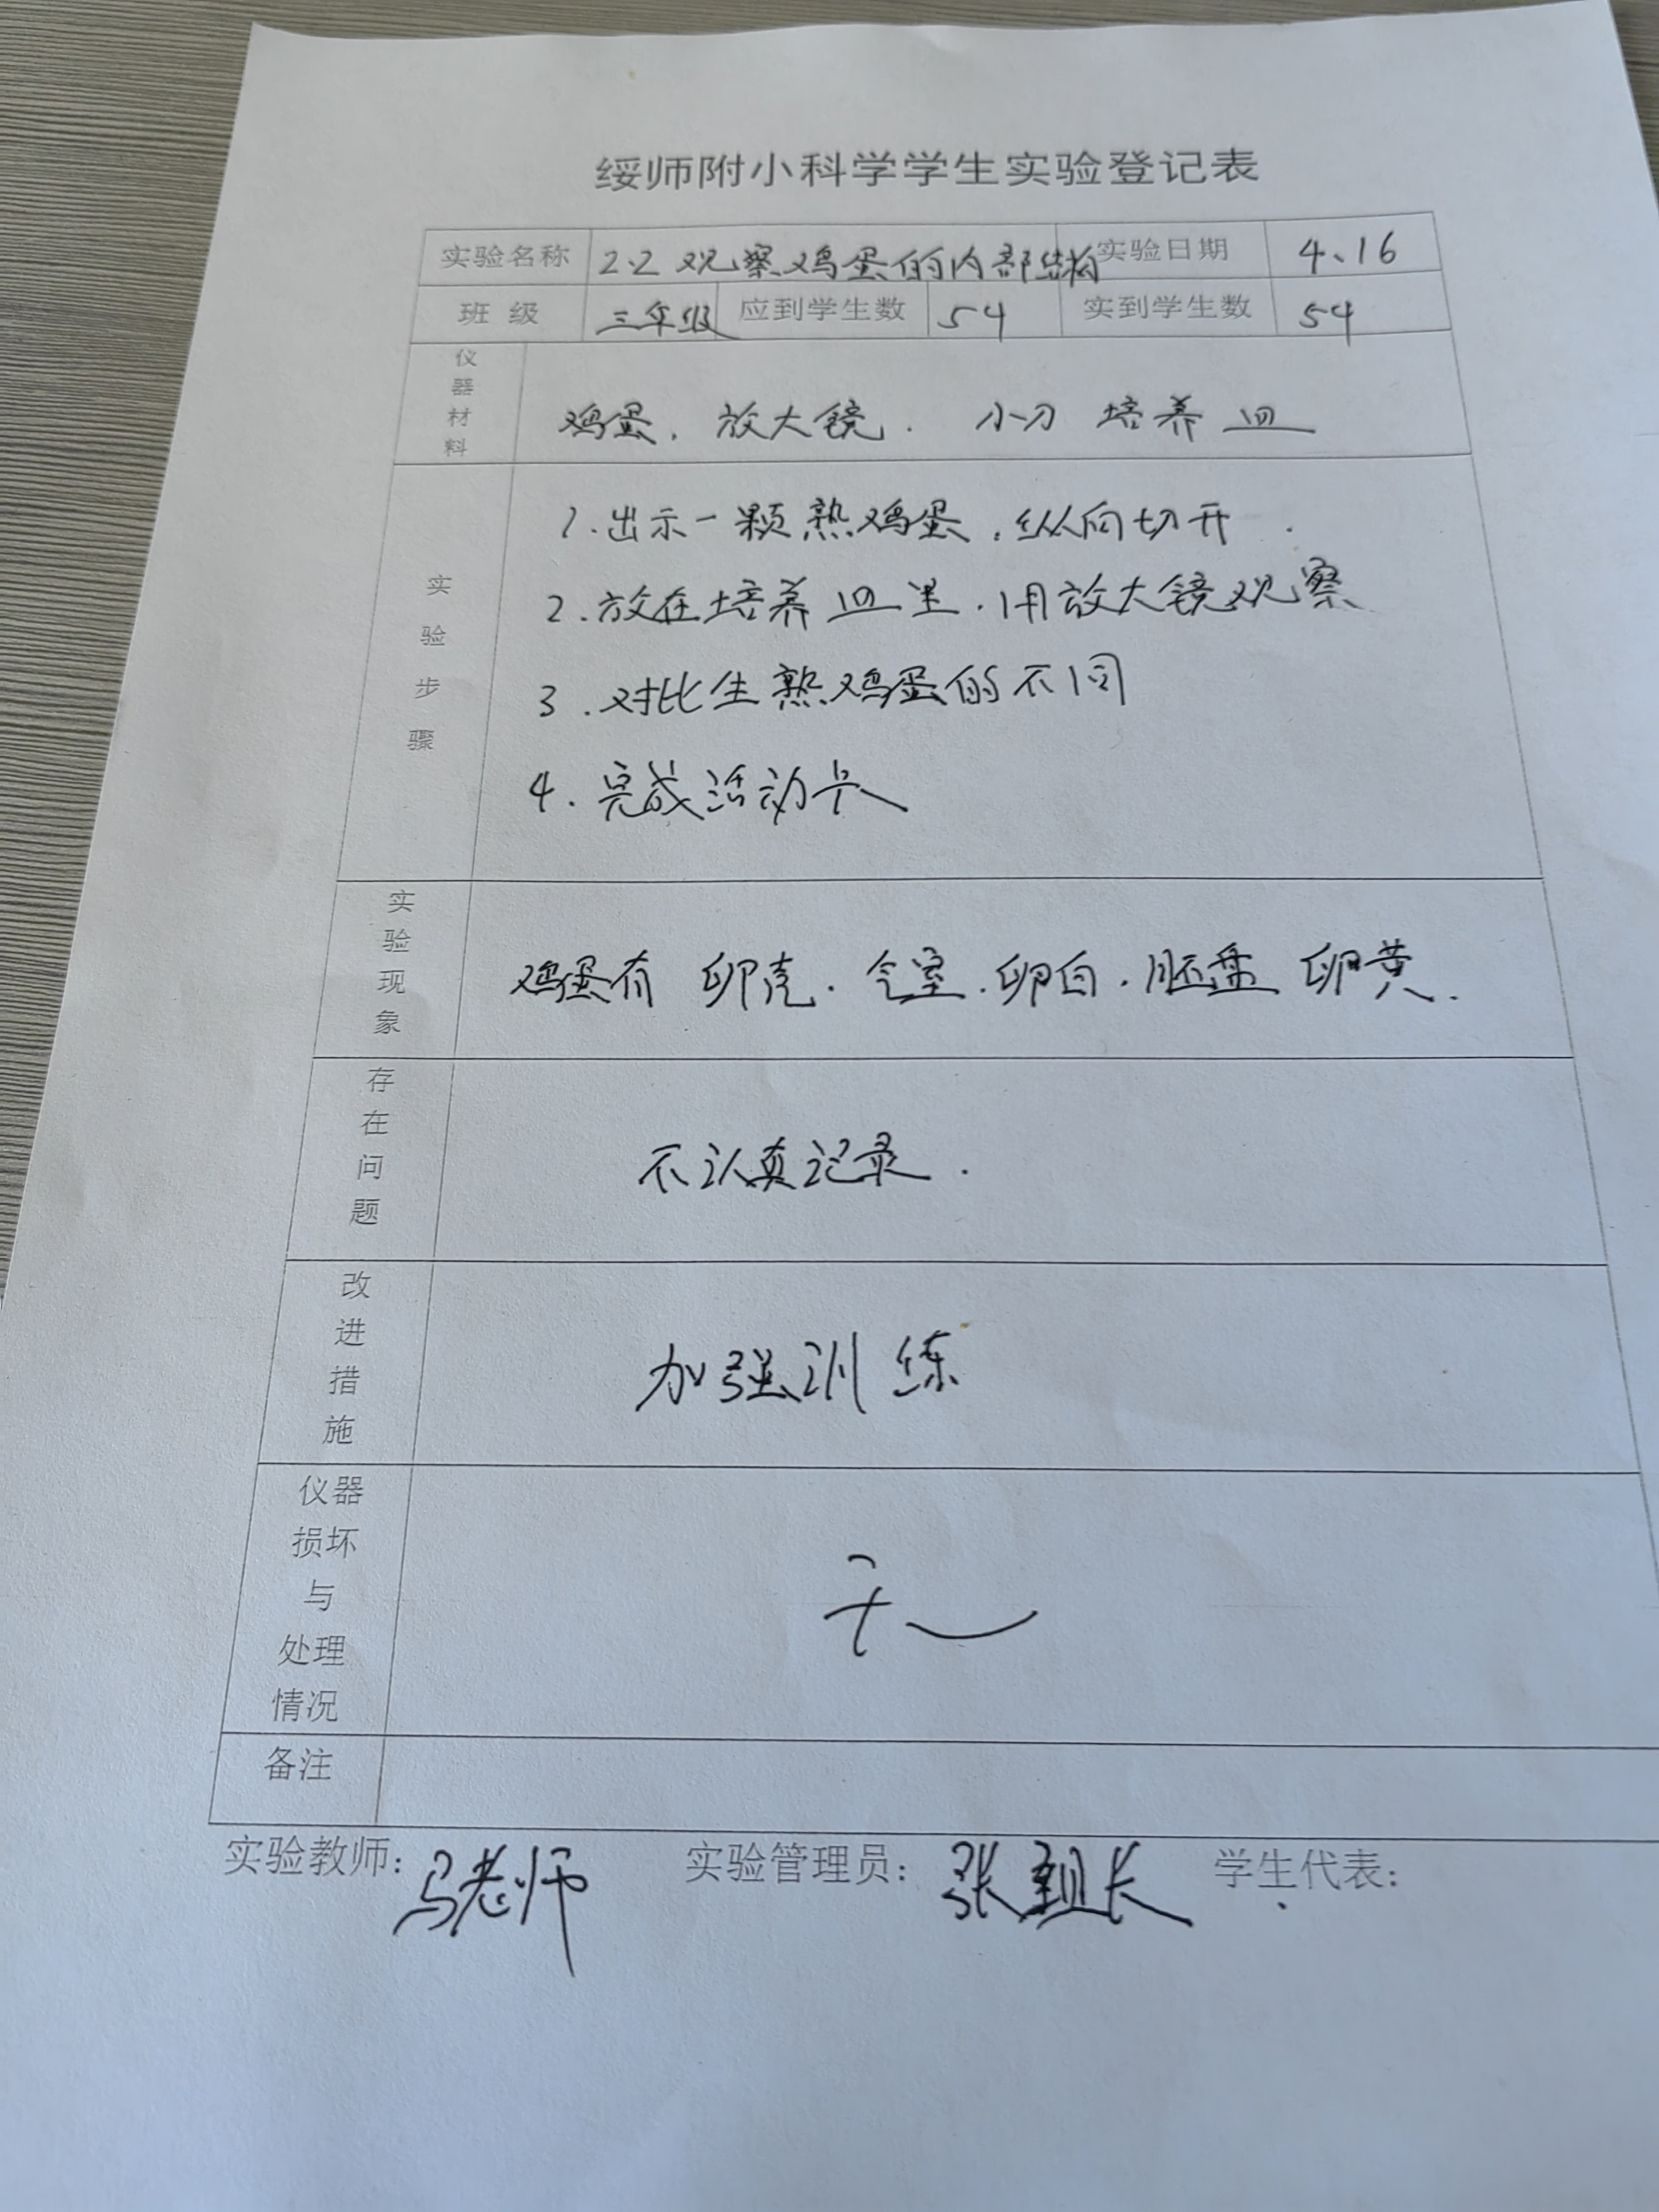 绥师附小科学学生实验登记表
实验名称 2.2 观察鸡蛋的内部结构 实验日期 4.16
班 级 三年级 应到学生数 54 实到学生数 54
仪器材料 鸡蛋、放大镜. 小刀 培养皿
实验步骤
1.出示一颗熟鸡蛋,纵向切开.
2.放在培养皿里.用放大镜观察
3.对比生熟鸡蛋的不同
4.完成活动卡
实验现象 鸡蛋有 卵壳.气室.卵白.胚盘 卵黄.
存在问题 不认真记录.
改进措施 加强训练
仪器损坏与处理情况 无
备注
实验教师:马老师 实验管理员:张组长 学生代表: